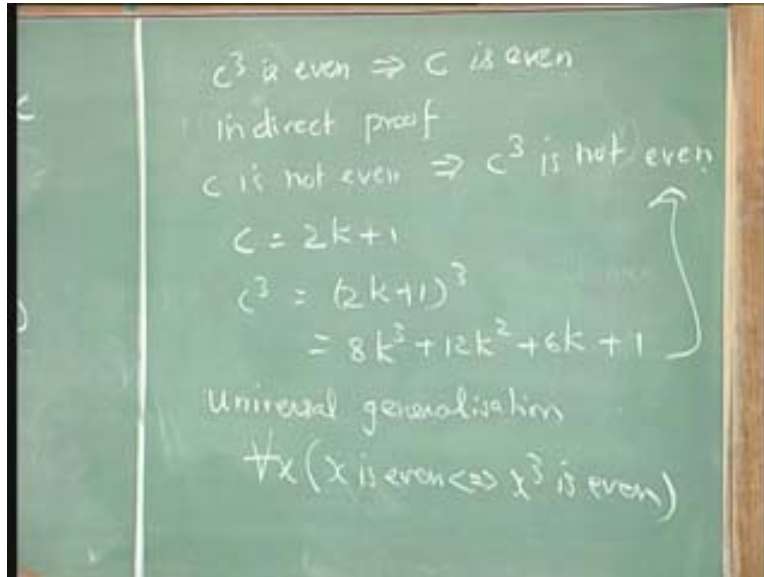 c³ is even ⇒ c is even
indirect proof
c is not even ⇒ c³ is not even
c = 2k+1
c³ = (2k+1)³
= 8k³+12k²+6k+1
Universal generalisation
∀x(x is even<=>x³ is even)